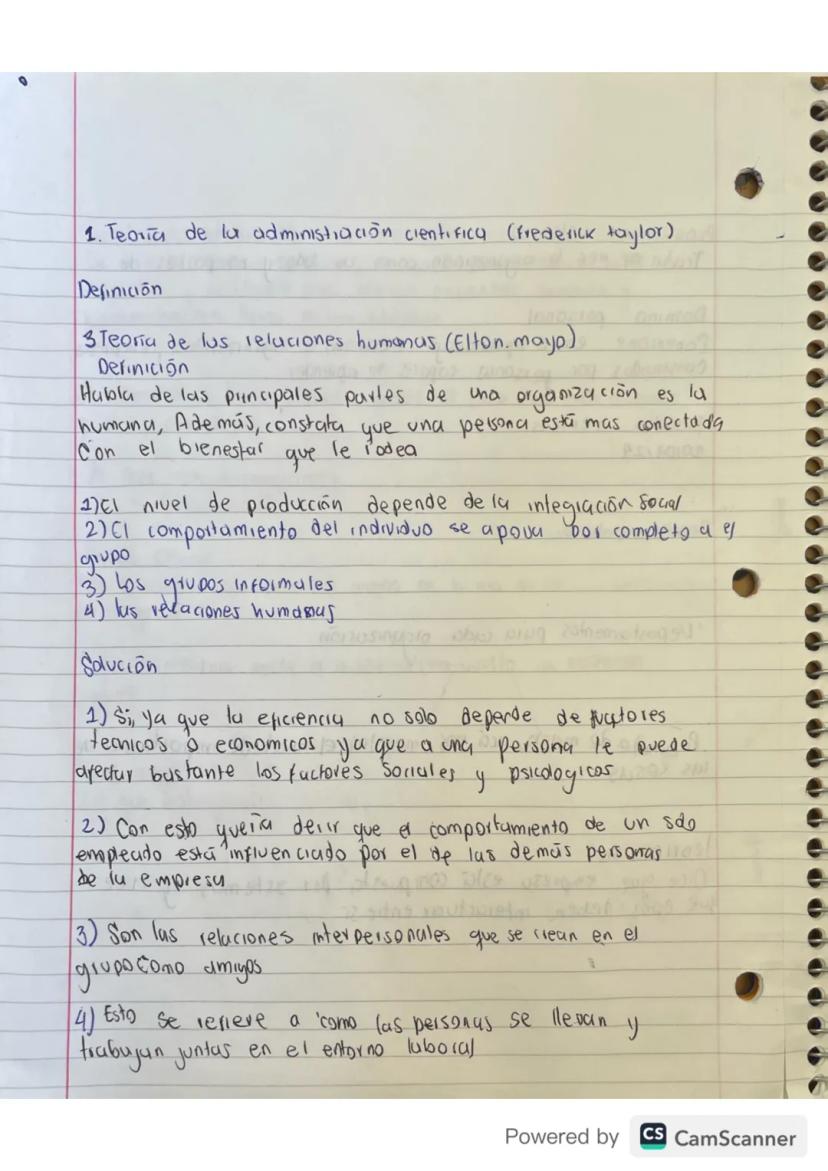 1. Teoría de la administración cientifica (frederick taylor)
Definición
3 Teoría de las relaciones humanas (Elton.mayo)
Definición
Habla de las principales partes de una organización es la
humana, Además, constata que una persona está mas conectada
Con el bienestar que le rodea
1) El nivel de producción depende de la integración Social
2) El comportamiento del individuo se apoya por completo a el
grupo
3) los grupos informales
4) las relaciones humanas
Solución
1) Si, ya que la eficiencia no solo depende de factores
tecnicos o economicos ya que a una persona le puede
afectar bastante los factores Sociales y psicologicos
2) Con esto quería decir que el comportamiento de un solo
empleado está influenciado por el de las demás personas
de la empresa
3) Son las relaciones interpersonales que se crean en el
grupo como amigos
4) Esto se refiere a como las personas se llevan y
trabajan juntas en el entorno laboral
Powered by CS CamScanner